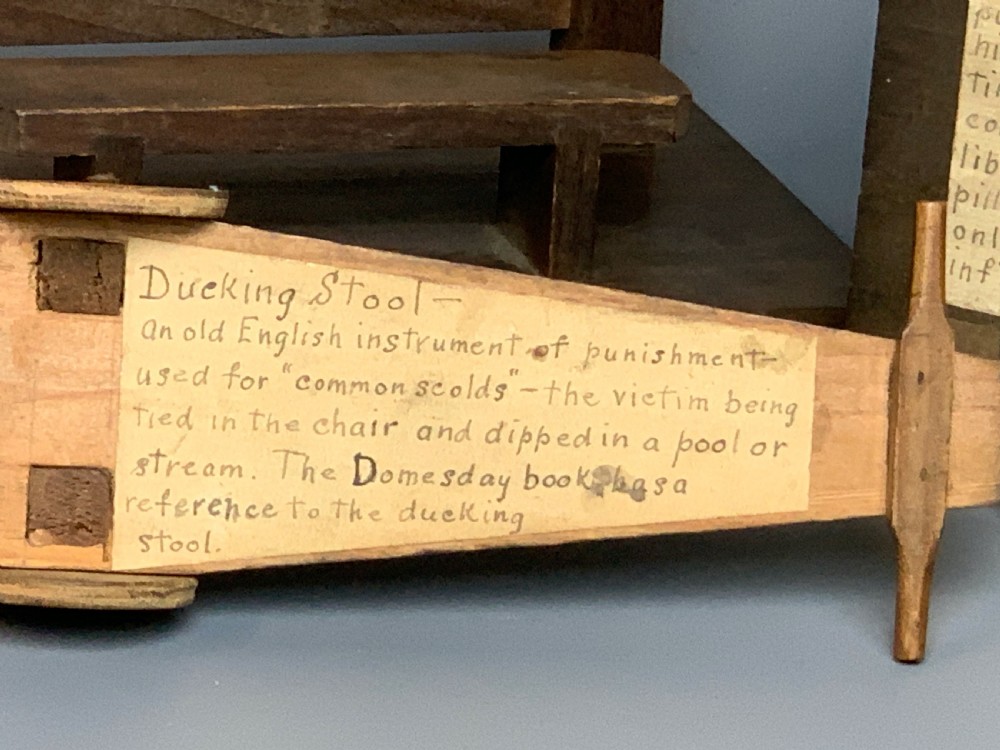 Ducking Stool—
an old English instrument of punishment—
used for "common scolds"—the victim being
tied in the chair and dipped in a pool or
stream. The Domesday book has a
reference to the ducking
stool.